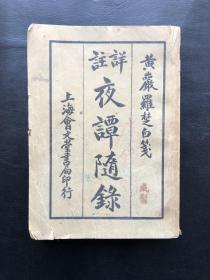 黃巖羅楚白箋
詳註
夜譚隨錄
上海會文堂書局印行